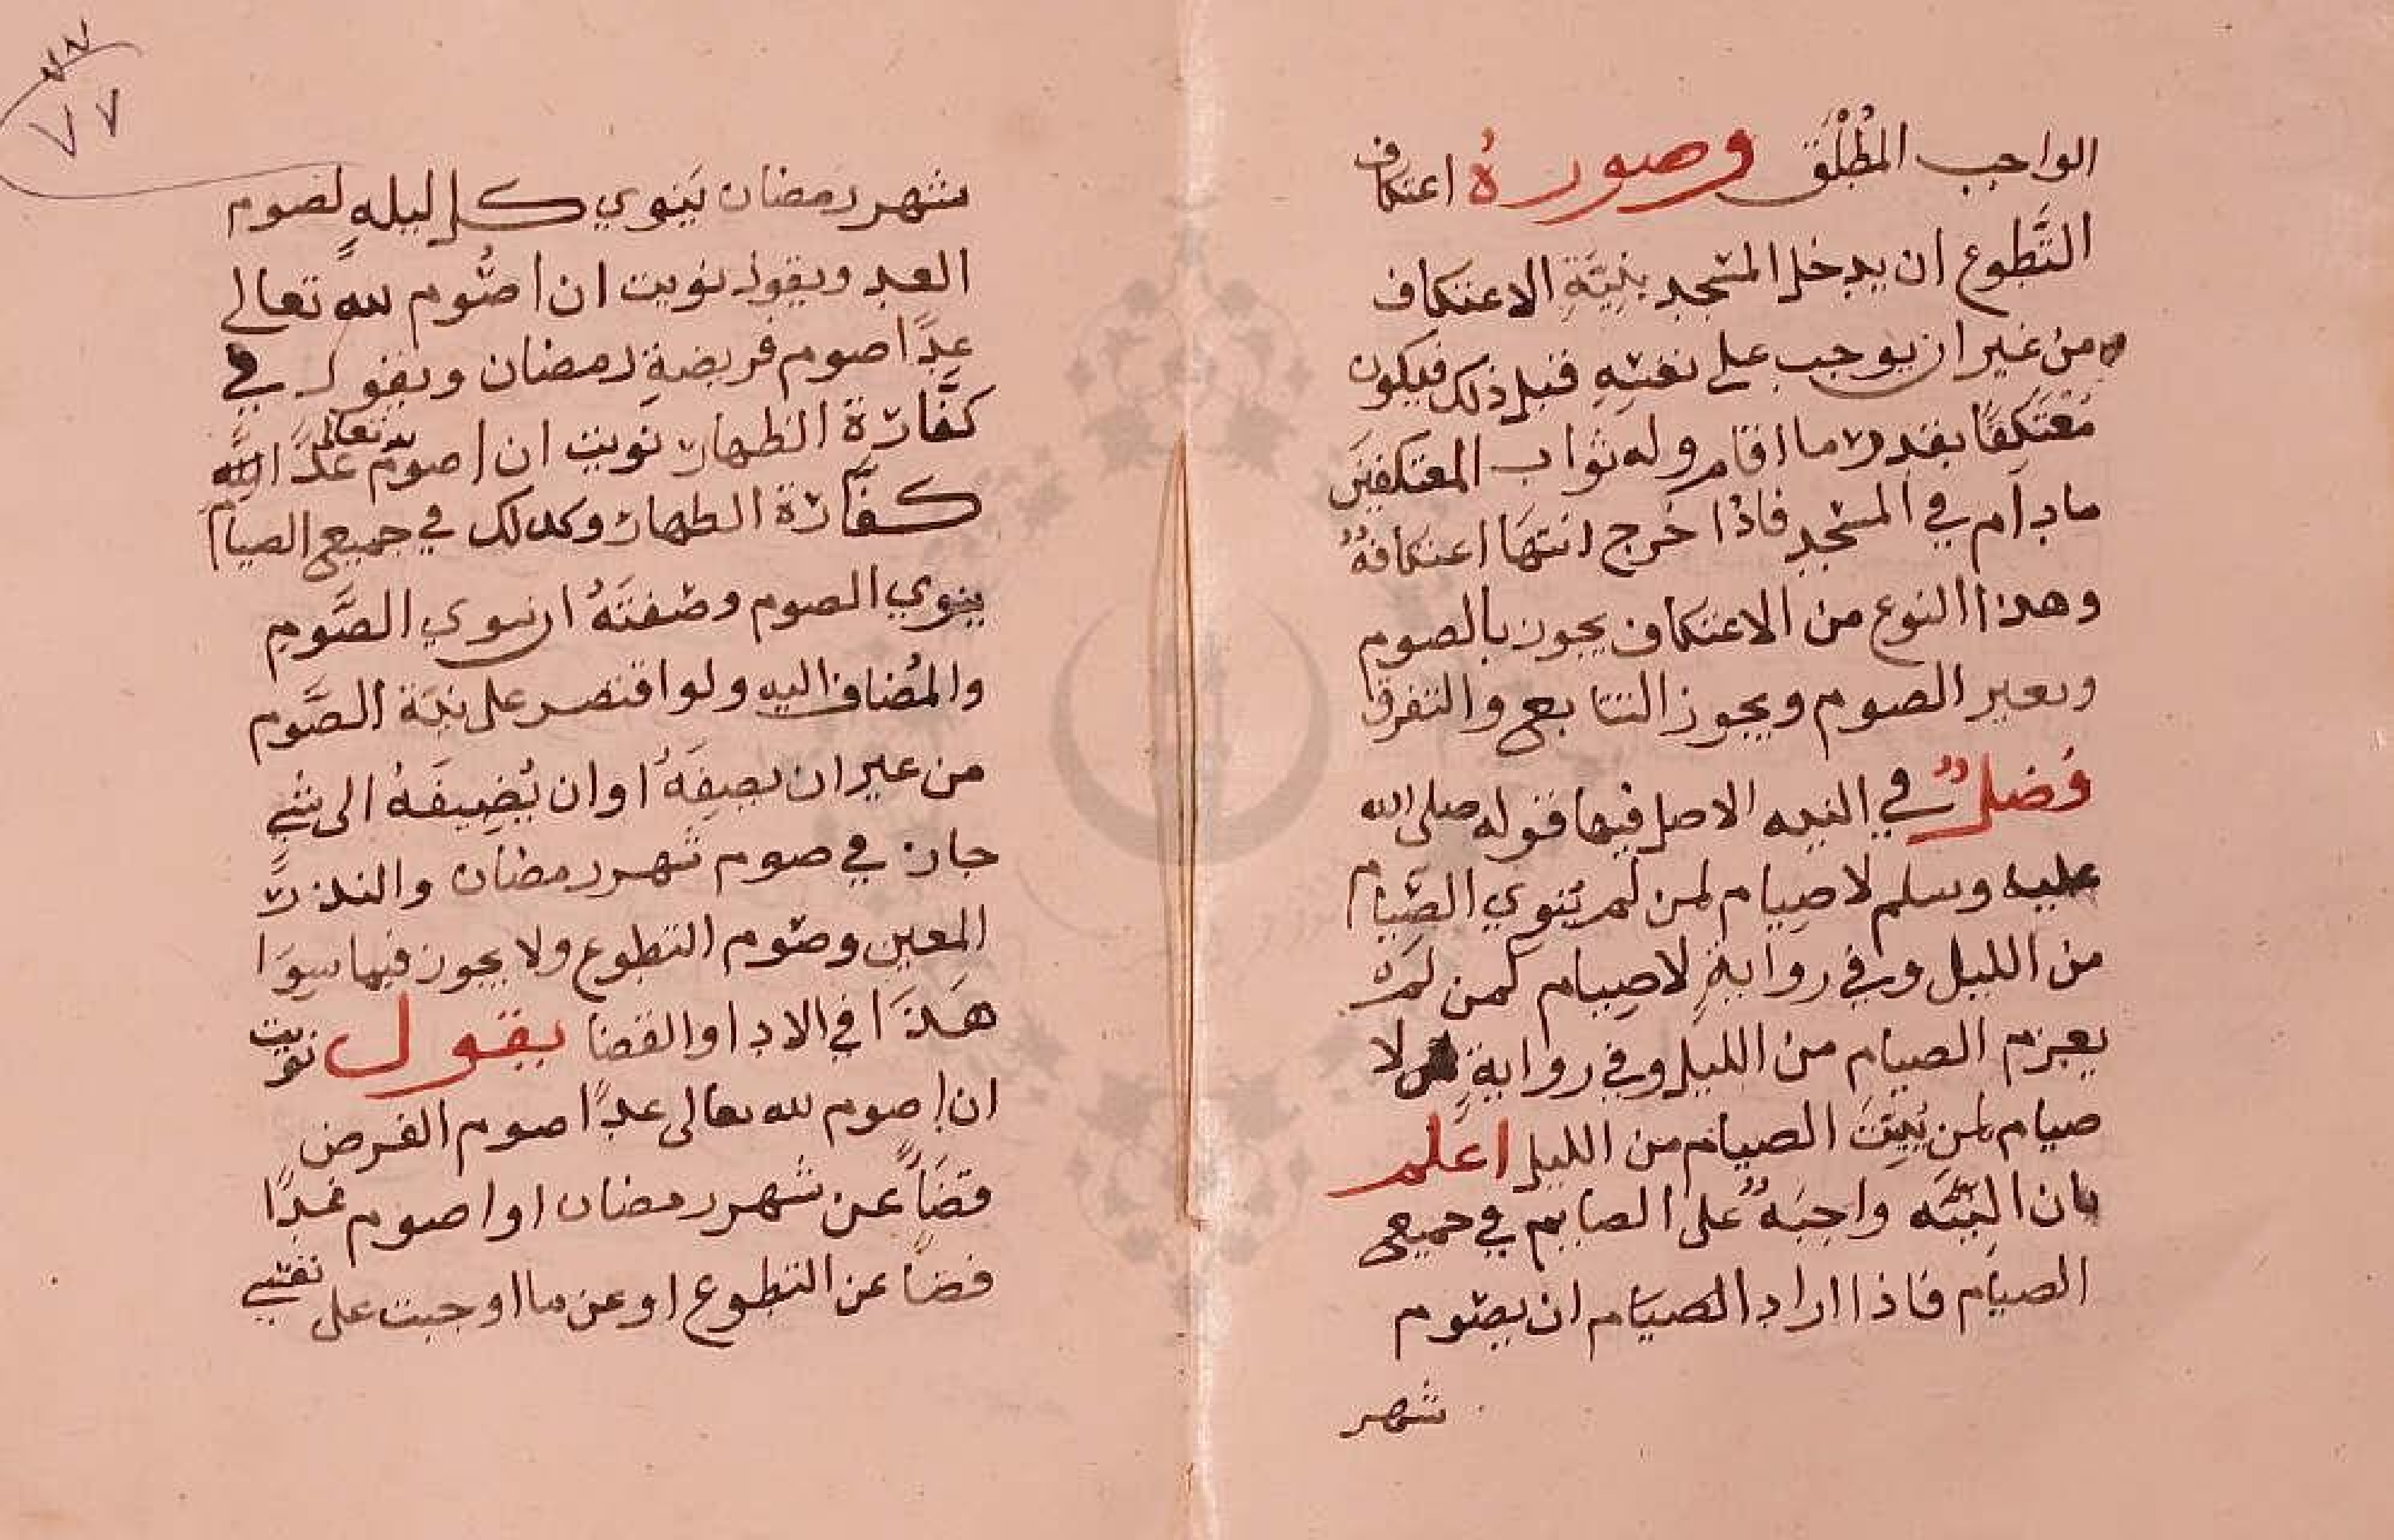 الواجب المُطْلَق وصورةُ اعتكاف
التَّطوع ان يدخل المسجد بنِيَّةِ الاعتكاف
من غير ان يوجب على نفسِهِ قبل ذلك فيكون
مُعْتَكِفًا بقدر ما اقام وله ثواب المعتكفين
ما دام في المسجد فاذا خَرج انتهَا اعتكافهُ
وهذا النوع من الاعتكاف يجوز بالصوم
وبغير الصوم ويجوز التتابع والتفرق
فَصْلٌ في النيه الاصل فيها قوله صلى الله
عليه وسلم لا صِيام لمن لم يَنوِي الصِّيام
من الليل وفي روايةٍ لا صِيام لمن لم
يعزم الصيام من الليل وفي روايةٍ لا
صيام لمن يُبيِّتَ الصيام من الليل اعلم
بان النيَّه واجبَهٌ على الصايم في جميع
الصيام فاذا اراد الصيام ان يصوم
شهر
٧٧
شهر رمضان يَنوي كل ليلهٍ لصوم
الغد ويقول نويت ان اصُوم لله تعالى
غدًا صوم فريضةِ رمضان ويقول في
كفَّارة الظهار نويت ان اصوم غدًا لله تعالى
كفَّارة الظهار وكذلك في جميع الصيام
ينوي الصوم وصفتَهُ ان ينوي الصَّوم
والمُضاف اليه ولو اقتصر على نيَّة الصَّوم
من غير ان يصِفَهُ او ان يُضِيفَهُ الى شي
جاز في صوم شهر رمضان والنذر
المعين وصوم التطوع ولا يجوز فيما سِوَا
هَذَا في الادا والقضا يقول نويت
ان اصوم لله تعالى غدًا صوم الفرض
قضَاً عن شهر رمضان او اصوم غدًا
قضاً عن التطوع او عن ما اوجبت على نفسي